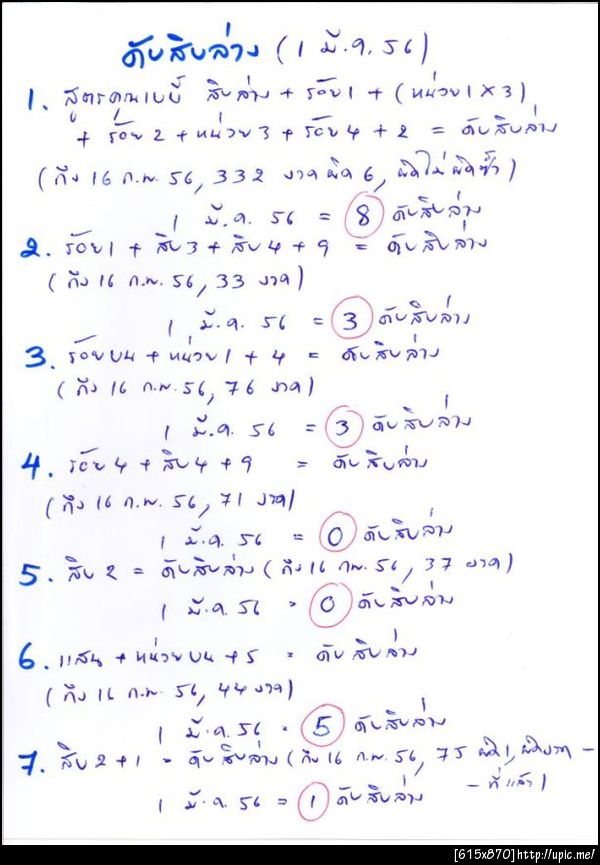 ดับสิบล่าง (1 มี.ค. 56)
1. สูตรคุณเบบี้ สิบล่าง + ร้อย1 + (หน่วย1 x 3)
+ ร้อย2 + หน่วย3 + ร้อย4 + 2 = ดับสิบล่าง
(ถึง 16 ก.พ. 56, 332 งวด ผิด 6, ผิดไม่ผิดซ้ำ)
1 มี.ค. 56 = 8 ดับสิบล่าง
2. ร้อย1 + สิบ3 + สิบ4 + 9 = ดับสิบล่าง
(ถึง 16 ก.พ. 56, 33 งวด)
1 มี.ค. 56 = 3 ดับสิบล่าง
3. ร้อยบน + หน่วย1 + 4 = ดับสิบล่าง
(ถึง 16 ก.พ. 56, 76 งวด)
1 มี.ค. 56 = 3 ดับสิบล่าง
4. ร้อย4 + สิบ4 + 9 = ดับสิบล่าง
(ถึง 16 ก.พ. 56, 71 งวด)
1 มี.ค. 56 = 0 ดับสิบล่าง
5. สิบ2 = ดับสิบล่าง (ถึง 16 ก.พ. 56, 37 งวด)
1 มี.ค. 56 = 0 ดับสิบล่าง
6. แสน + หน่วยบน + 5 = ดับสิบล่าง
(ถึง 16 ก.พ. 56, 44 งวด)
1 มี.ค. 56 = 5 ดับสิบล่าง
7. สิบ2+1 = ดับสิบล่าง (ถึง 16 ก.พ. 56, 75 ผิด1, ผิดงวด -
- ที่แล้ว)
1 มี.ค. 56 = 1 ดับสิบล่าง
[615x870]http://upic.me/